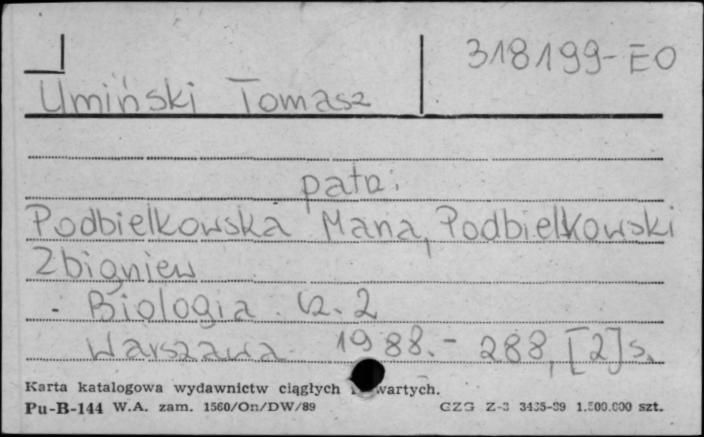 318199-EO
Umiński Tomasz
patrz:
Podbielkowska Maria, Podbielkowski
Zbigniew
Biologia. Cz. 2
Warszawa 1988. - 288, [2] s.
Karta katalogowa wydawnictw ciągłych wartych.
Pu-B-144 W.A. zam. 1560/On/DW/89 CZG Z-3 3435-89 1.500.000 szt.